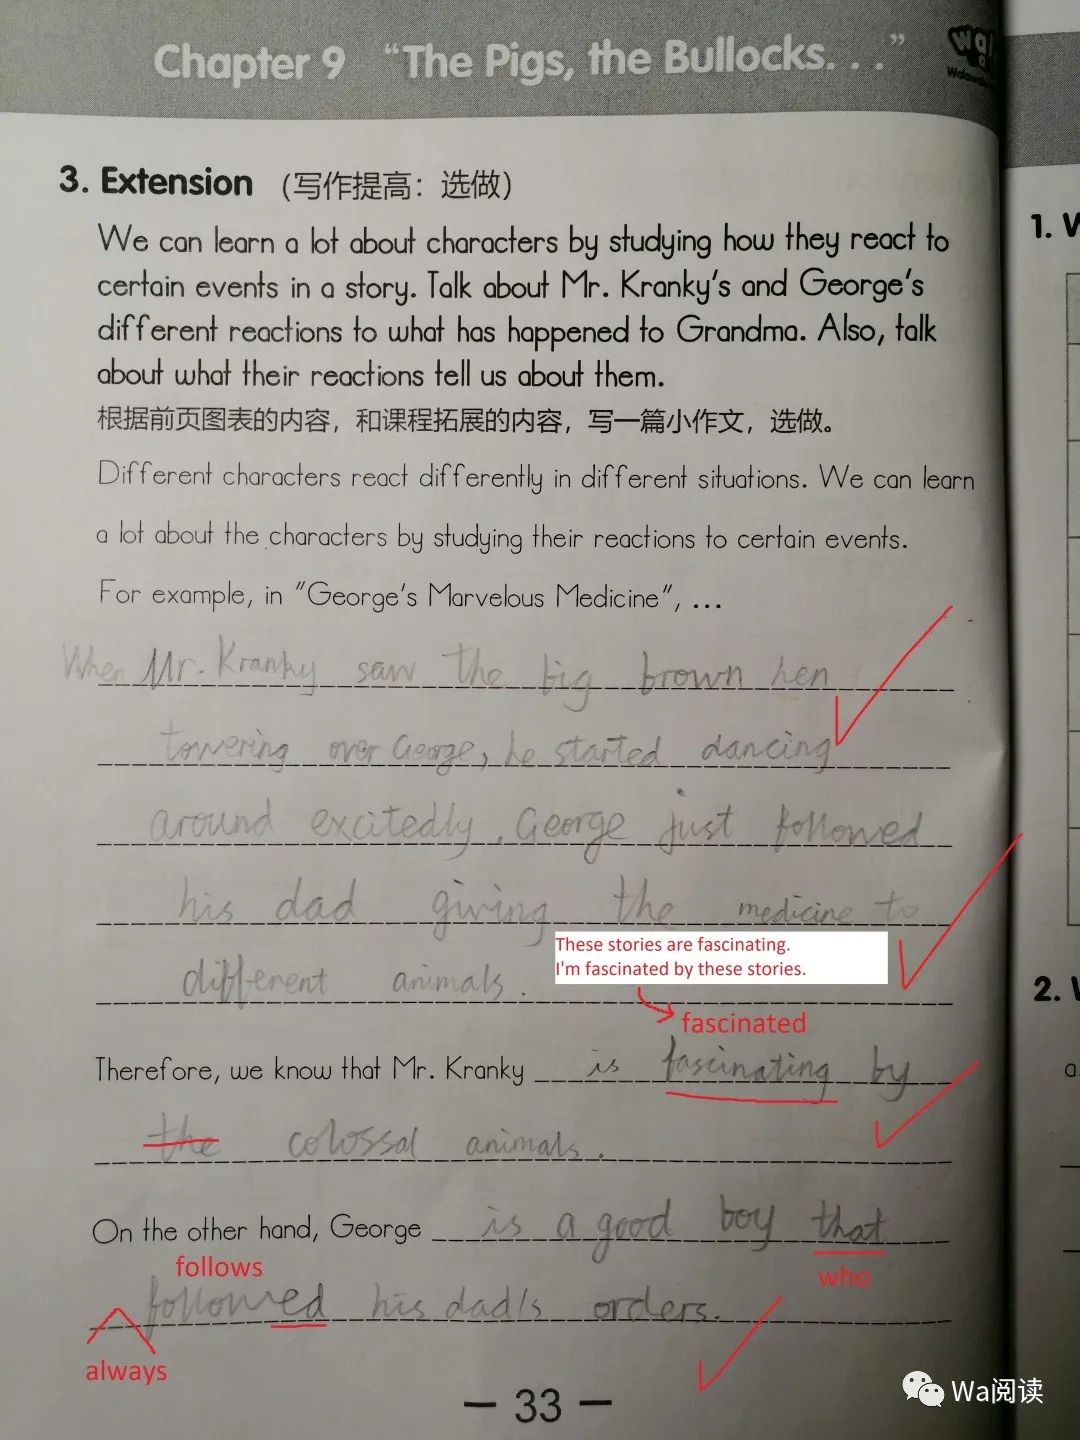 Chapter 9 "The Pigs, the Bullocks. . ."
3. Extension (写作提高：选做)
We can learn a lot about characters by studying how they react to
certain events in a story. Talk about Mr. Kranky's and George's
different reactions to what has happened to Grandma. Also, talk
about what their reactions tell us about them.
根据前页图表的内容，和课程拓展的内容，写一篇小作文，选做。
Different characters react differently in different situations. We can learn
a lot about the characters by studying their reactions to certain events.
For example, in "George's Marvelous Medicine", ...
When Mr. Kranky saw the big brown hen
towering over George, he started dancing
around excitedly. George just followed
his dad giving the medicine to
These stories are fascinating.
I'm fascinated by these stories.
different animals.
fascinated
Therefore, we know that Mr. Kranky is fascinating by
the colossal animals.
On the other hand, George is a good boy that
follows
who
followed his dad's orders.
always
- 33 -
Wa阅读
1. W
2. W
a